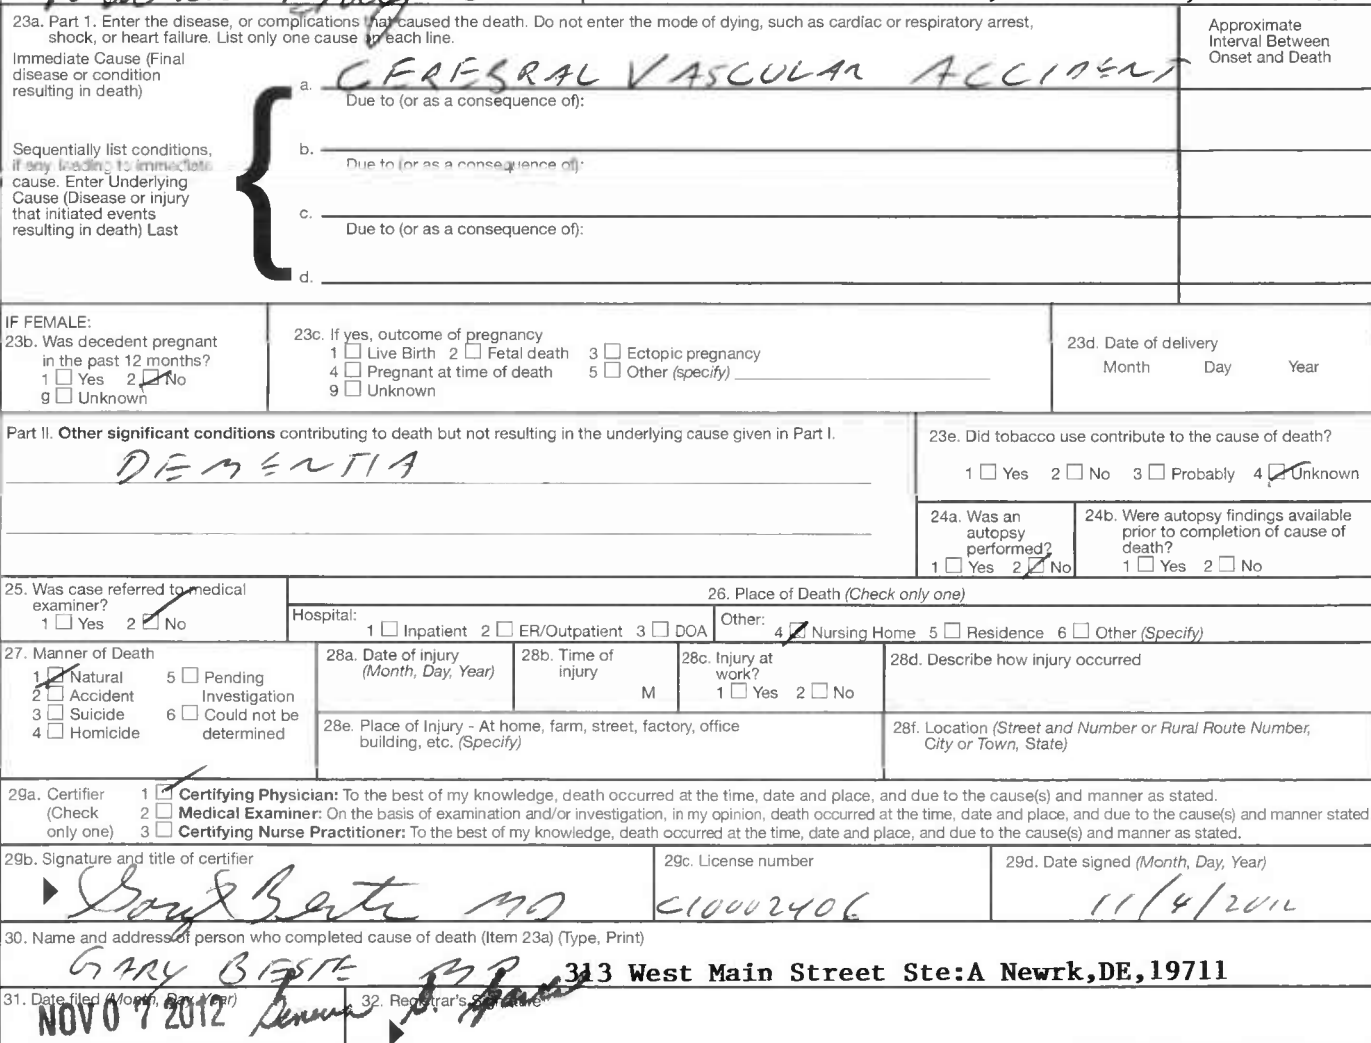 23a. Part 1. Enter the disease, or complications that caused the death. Do not enter the mode of dying, such as cardiac or respiratory arrest,
shock, or heart failure. List only one cause on each line.
Approximate
Interval Between
Onset and Death
Immediate Cause (Final
disease or condition
resulting in death)
a. CEREBRAL VASCULAR ACCIDENT
Due to (or as a consequence of):
Sequentially list conditions,
if any, leading to immediate
cause. Enter Underlying
Cause (Disease or injury
that initiated events
resulting in death) Last
b.
Due to (or as a consequence of):
c.
Due to (or as a consequence of):
d.
IF FEMALE:
23b. Was decedent pregnant
in the past 12 months?
1 ☐ Yes 2 ☑ No
9 ☐ Unknown
23c. If yes, outcome of pregnancy
1 ☐ Live Birth 2 ☐ Fetal death 3 ☐ Ectopic pregnancy
4 ☐ Pregnant at time of death 5 ☐ Other (specify)
9 ☐ Unknown
23d. Date of delivery
Month Day Year
Part II. Other significant conditions contributing to death but not resulting in the underlying cause given in Part I.
DEMENTIA
23e. Did tobacco use contribute to the cause of death?
1 ☐ Yes 2 ☐ No 3 ☐ Probably 4 ☑ Unknown
24a. Was an
autopsy
performed?
1 ☐ Yes 2 ☑ No
24b. Were autopsy findings available
prior to completion of cause of
death?
1 ☐ Yes 2 ☐ No
25. Was case referred to medical
examiner?
1 ☐ Yes 2 ☑ No
26. Place of Death (Check only one)
Hospital: 1 ☐ Inpatient 2 ☐ ER/Outpatient 3 ☐ DOA
Other: 4 ☑ Nursing Home 5 ☐ Residence 6 ☐ Other (Specify)
27. Manner of Death
1 ☑ Natural 5 ☐ Pending
2 ☐ Accident Investigation
3 ☐ Suicide 6 ☐ Could not be
4 ☐ Homicide determined
28a. Date of injury
(Month, Day, Year)
28b. Time of
injury
M
28c. Injury at
work?
1 ☐ Yes 2 ☐ No
28d. Describe how injury occurred
28e. Place of Injury - At home, farm, street, factory, office
building, etc. (Specify)
28f. Location (Street and Number or Rural Route Number,
City or Town, State)
29a. Certifier 1 ☑ Certifying Physician: To the best of my knowledge, death occurred at the time, date and place, and due to the cause(s) and manner as stated.
(Check 2 ☐ Medical Examiner: On the basis of examination and/or investigation, in my opinion, death occurred at the time, date and place, and due to the cause(s) and manner stated
only one) 3 ☐ Certifying Nurse Practitioner: To the best of my knowledge, death occurred at the time, date and place, and due to the cause(s) and manner as stated.
29b. Signature and title of certifier
MD
29c. License number
C10002406
29d. Date signed (Month, Day, Year)
11/4/2012
30. Name and address of person who completed cause of death (Item 23a) (Type, Print)
GARY BESTE MD 313 West Main Street Ste:A Newrk,DE,19711
31. Date filed (Month, Day, Year)
NOV 07 2012
32. Registrar's Signature